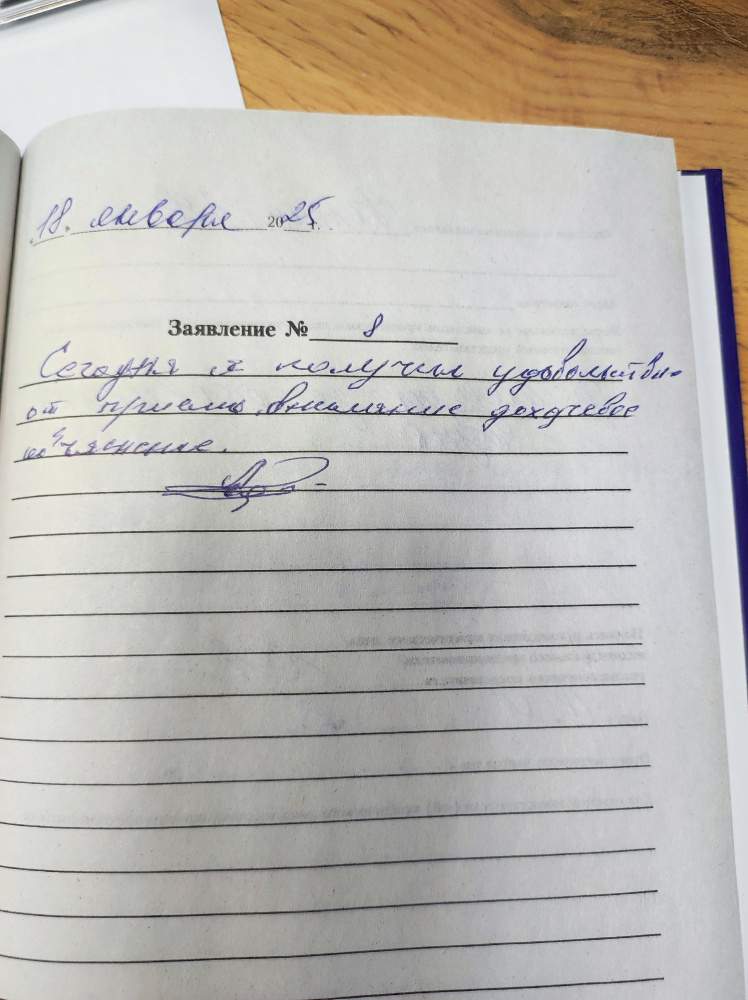 18. января 2025 г.
Заявление № 8
Сегодня я получил удовольствие
от приема, внимание доходчевое
объяснение.